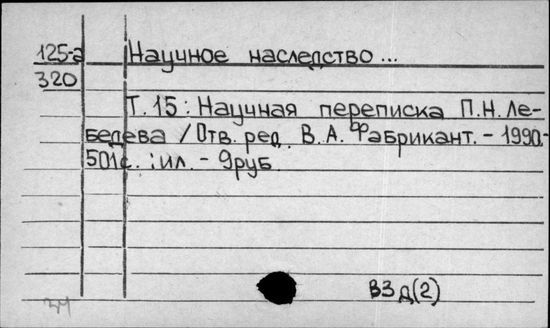 125-a Научное наследство...
320
Т. 15: Научная переписка П.Н. Ле-
бедева / Отв. ред. В. А. Фабрикант. - 1990.-
501с. : ил. - 9руб.
ВЗд(2)